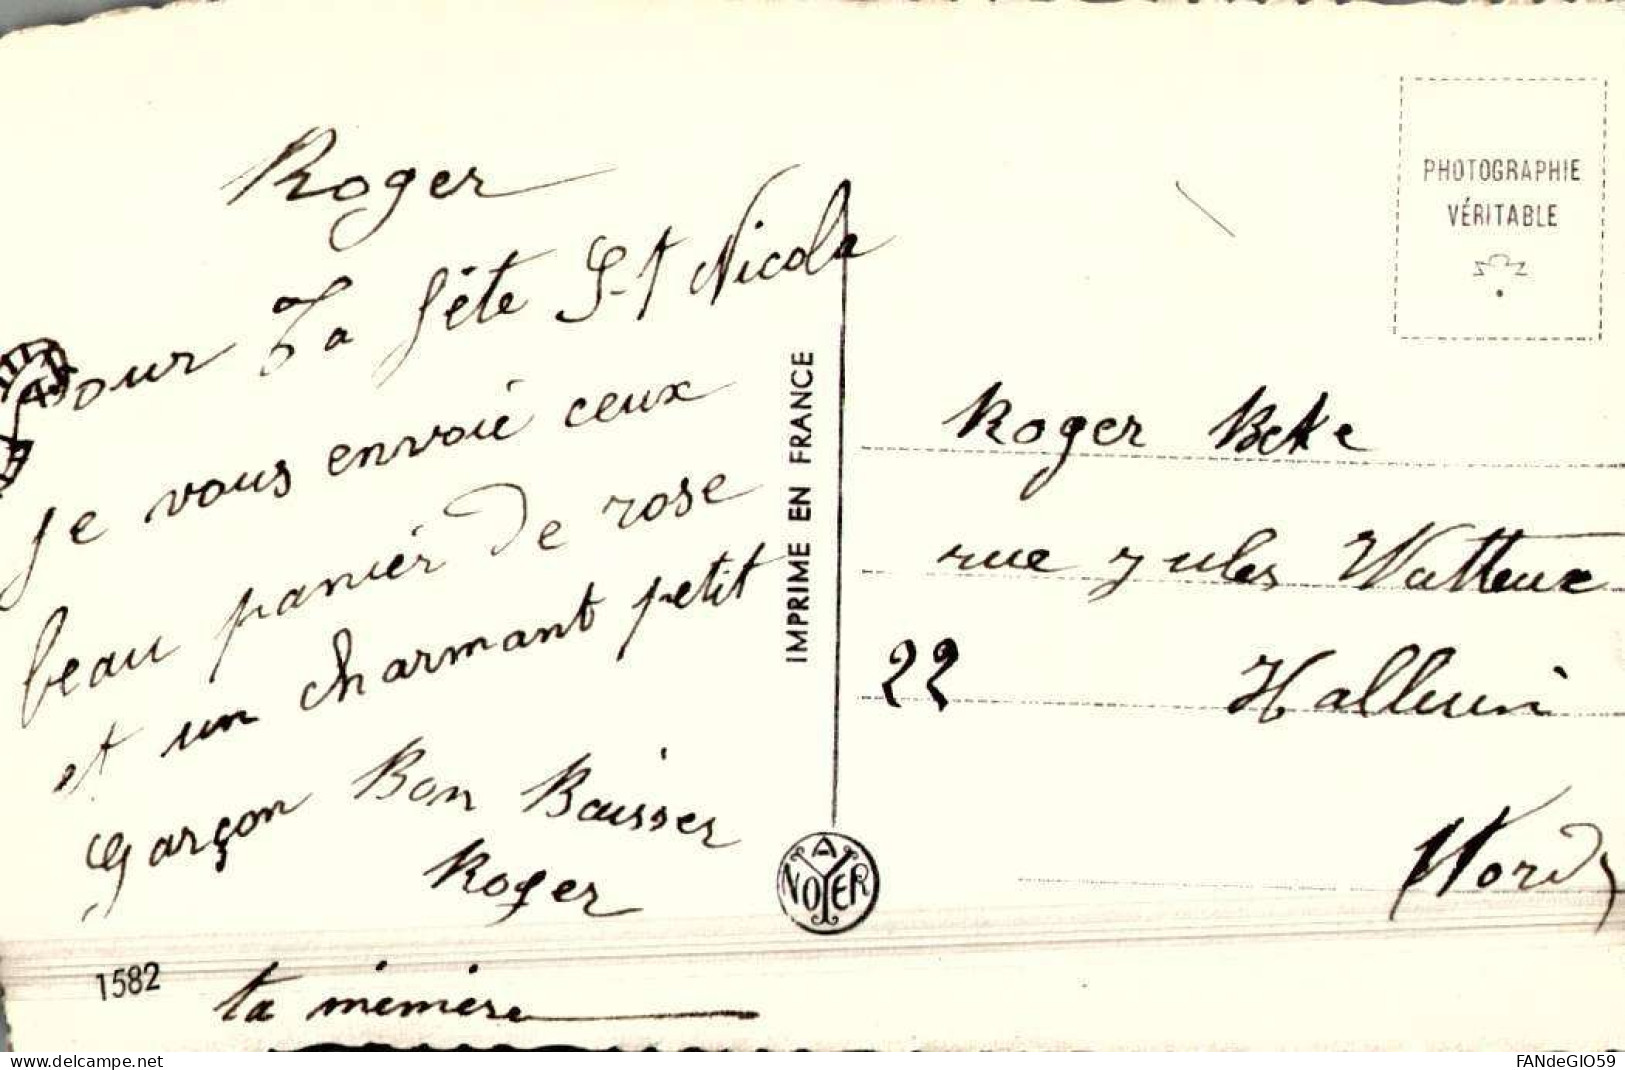 Roger
Pour La fête S-t Nicola
Je vous envoie ceux
beau panier de rose
et un charmant petit
garçon Bon Baisser
Roger
1582
ta mémère
IMPRIME EN FRANCE
A NOYER
PHOTOGRAPHIE
VÉRITABLE
Roger Beke
rue Jules Watteux
22 Halluin
Nord
www.delcampe.net
FANdeGIO59